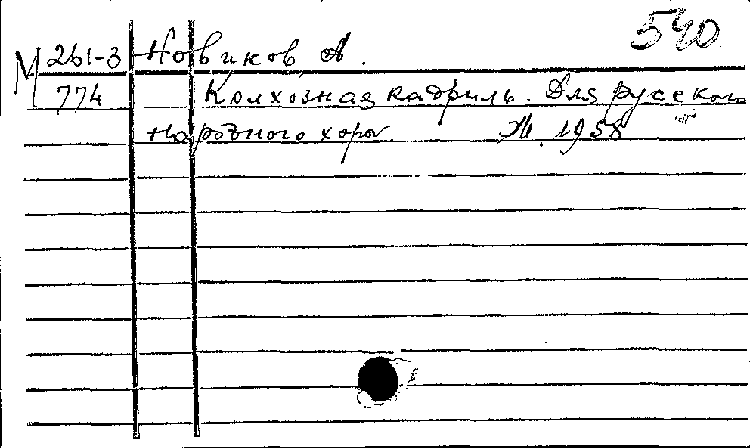 540
М 261-3 Новиков А.
774 Колхозная кадриль. Для русского
народного хора М. 1958